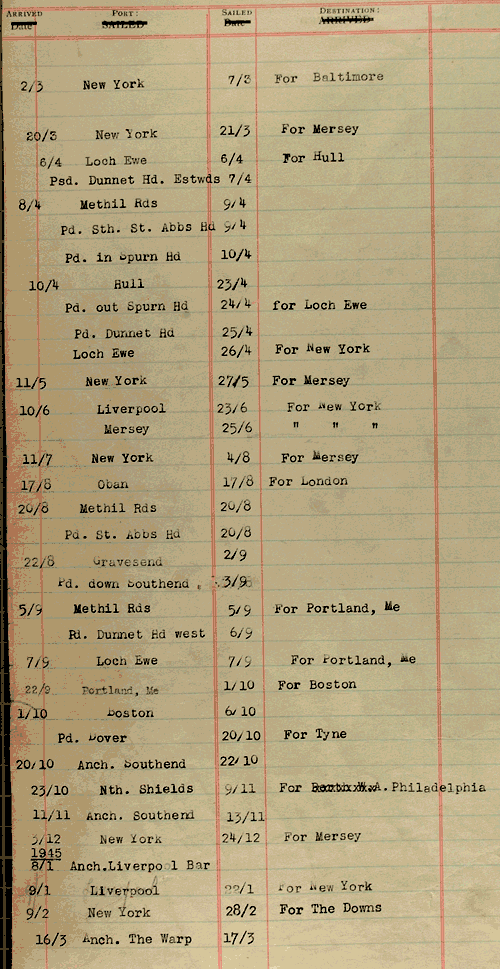 ARRIVED PORT: SAILED DESTINATION:
Date SAILED Date ARRIVED
2/3 New York 7/3 For Baltimore
20/3 New York 21/3 For Mersey
6/4 Loch Ewe 6/4 For Hull
Psd. Dunnet Hd. Estwds 7/4
8/4 Methil Rds 9/4
Pd. Sth. St. Abbs Hd 9/4
Pd. in Spurn Hd 10/4
10/4 Hull 23/4
Pd. out Spurn Hd 24/4 for Loch Ewe
Pd. Dunnet Hd 25/4
Loch Ewe 26/4 For New York
11/5 New York 27/5 For Mersey
10/6 Liverpool 23/6 For New York
Mersey 25/6 " " "
11/7 New York 4/8 For Mersey
17/8 Oban 17/8 For London
20/8 Methil Rds 20/8
Pd. St. Abbs Hd 20/8
22/8 Gravesend 2/9
Pd. down Southend 3/9
5/9 Methil Rds 5/9 For Portland, Me
Rd. Dunnet Hd west 6/9
7/9 Loch Ewe 7/9 For Portland, Me
22/9 Portland, Me 1/10 For Boston
1/10 Boston 6/10
Pd. Dover 20/10 For Tyne
20/10 Anch. Southend 22/10
23/10 Nth. Shields 9/11 For Philadelphia
11/11 Anch. Southend 13/11
3/12 New York 24/12 For Mersey
1945
8/1 Anch.Liverpool Bar
9/1 Liverpool 22/1 For New York
9/2 New York 28/2 For The Downs
16/3 Anch. The Warp 17/3